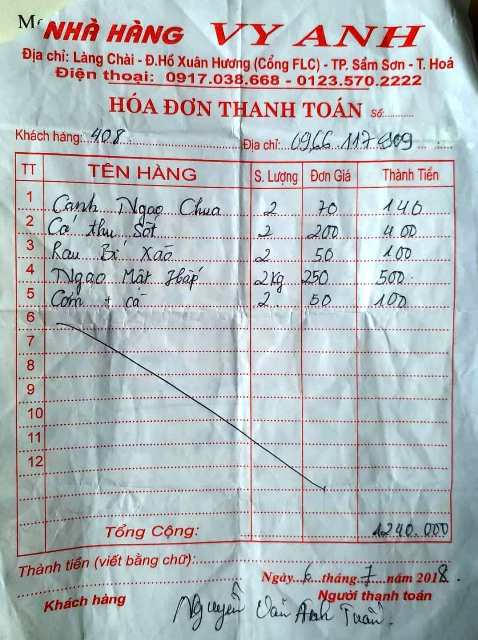 NHÀ HÀNG VY ANH
Địa chỉ: Làng Chài - Đ.Hồ Xuân Hương (Cổng FLC) - TP. Sầm Sơn - T. Hoá
Điện thoại: 0917.038.668 - 0123.570.2222
HÓA ĐƠN THANH TOÁN Số:
Khách hàng: 408 Địa chỉ: 0966 117
TT TÊN HÀNG S. Lượng Đơn Giá Thành Tiền
1 Canh Ngao Chua 2 70 140
2 Cá thu Sốt 2 200 400
3 Rau Bí Xào 2 50 100
4 Ngao Mật Hấp 2kg 250 500
5 Cơm + cà 2 50 100
6
7
8
9
10
11
12
Tổng Cộng: 1240.000
Thành tiền (viết bằng chữ):
Ngày 6 tháng 7 năm 2018
Khách hàng Người thanh toán
Nguyễn Văn Anh Tuấn.